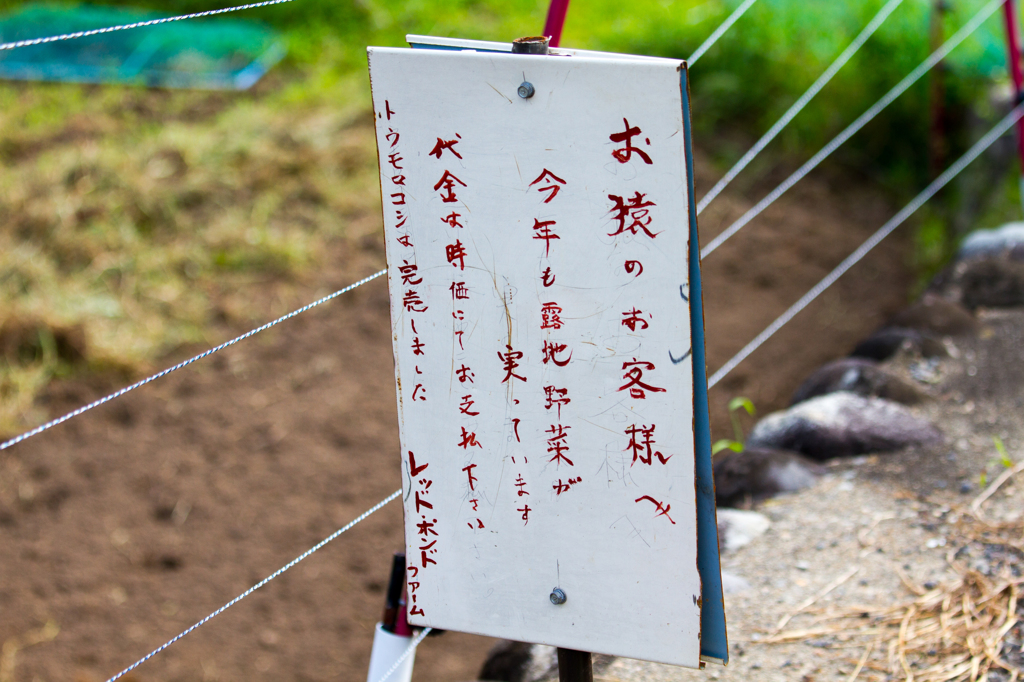 お猿のお客様へ
今年も露地野菜が
実っています
代金は時価にてお支払下さい
トウモロコシは完売しました
レッド・ポンドファーム